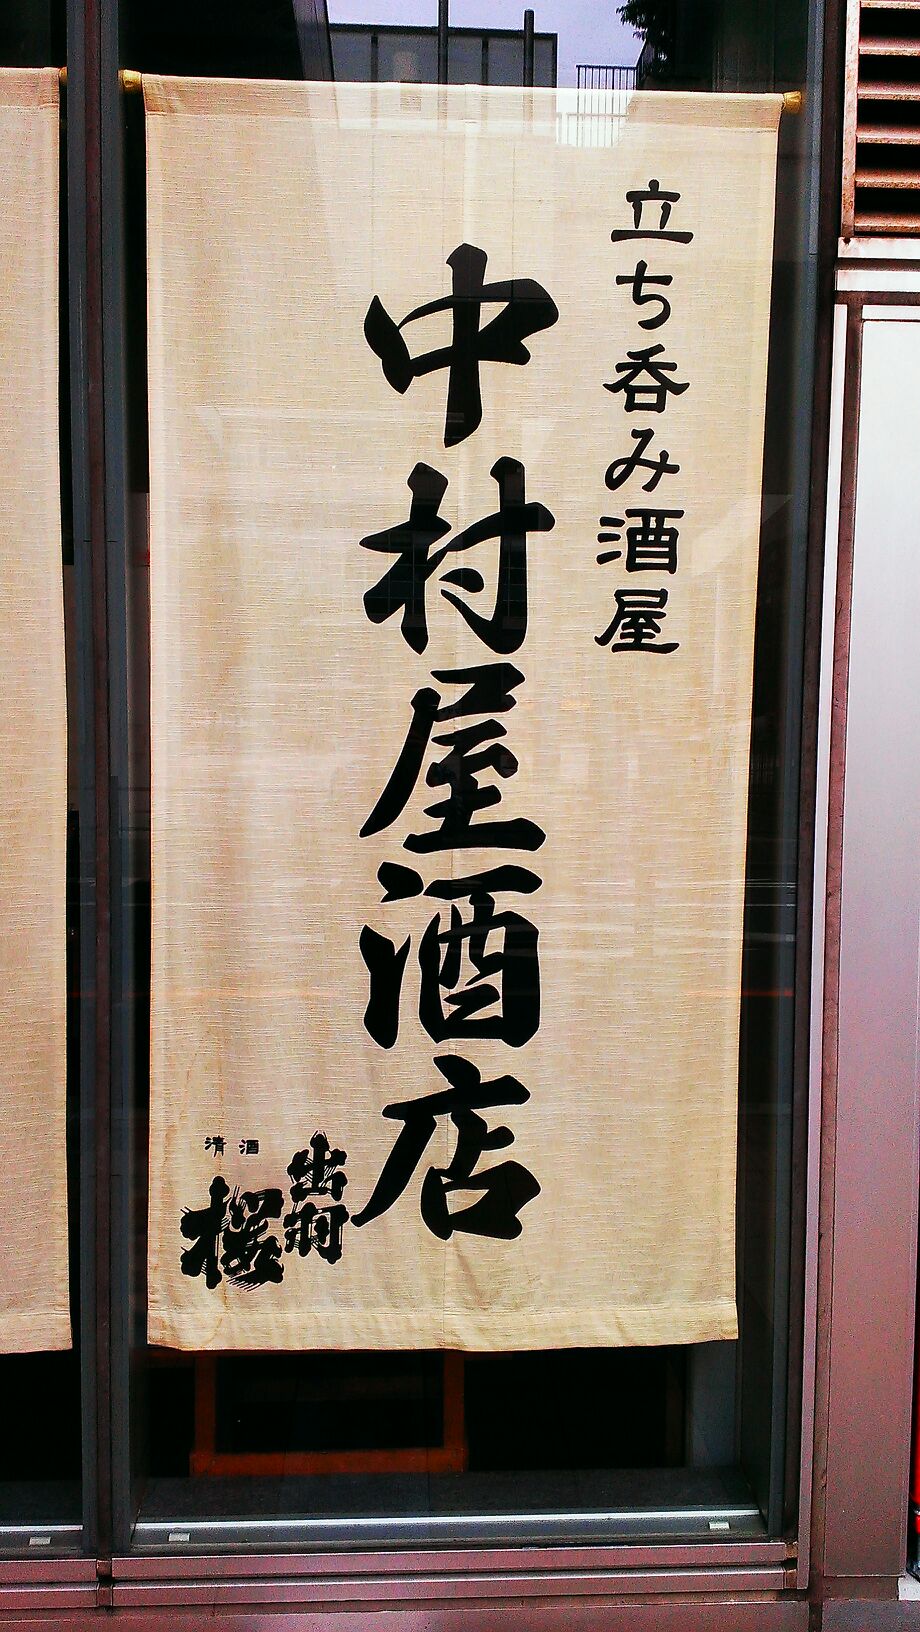 立ち呑み酒屋
中村屋酒店
清酒
出羽
桜